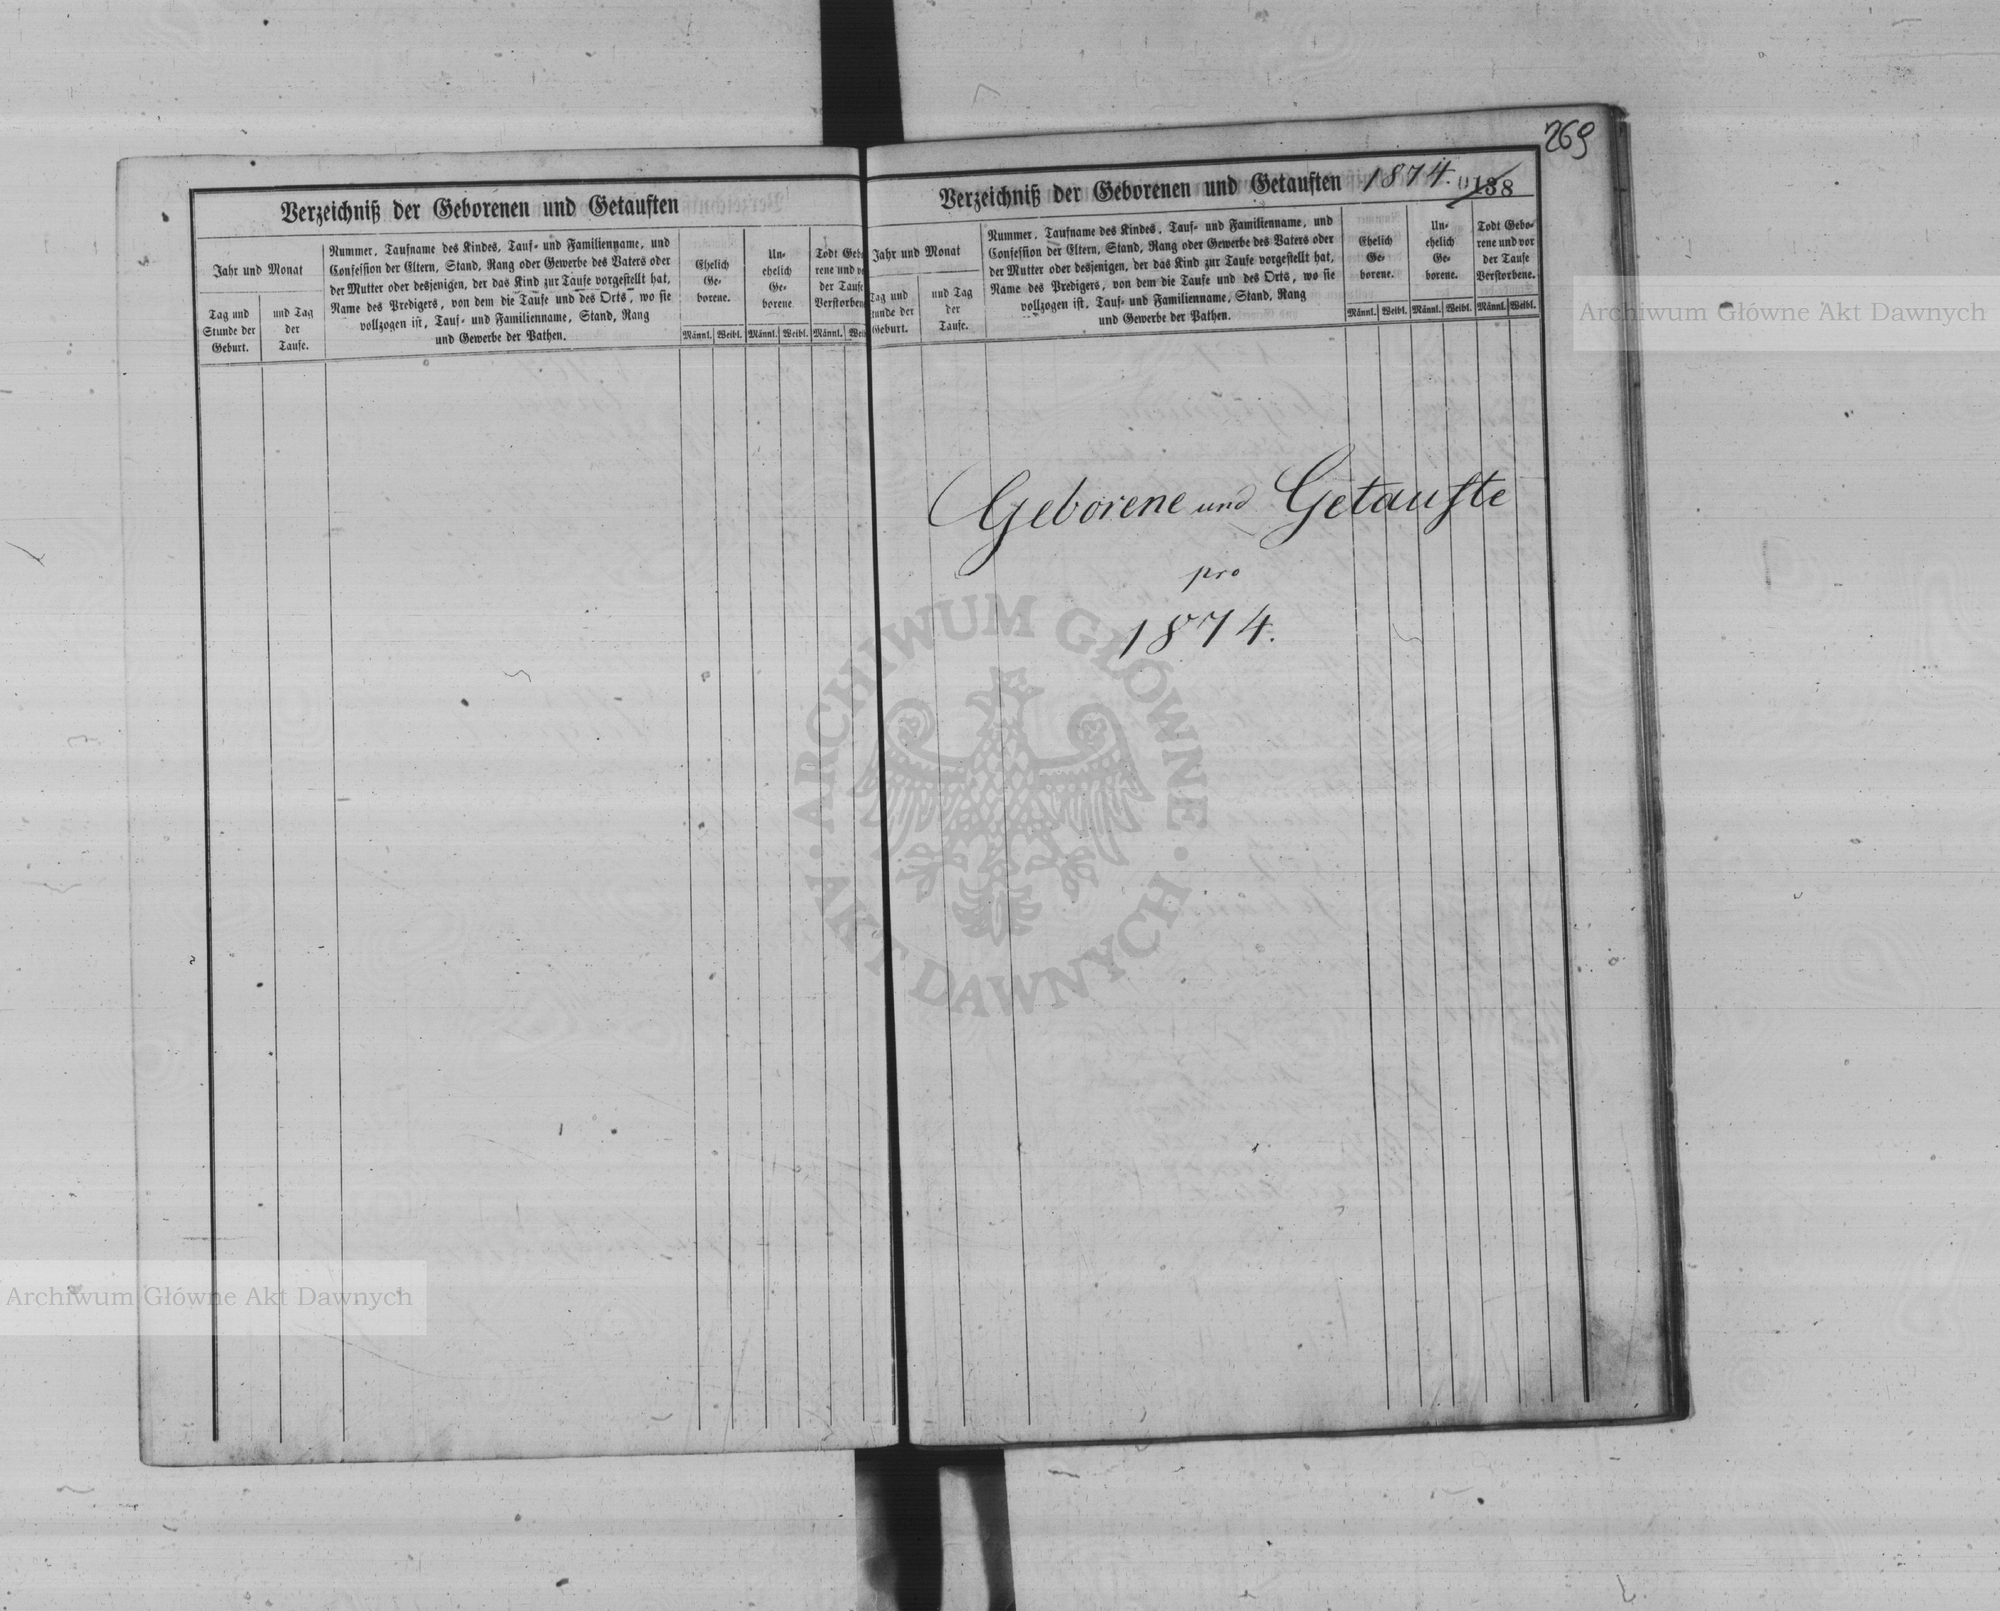 Verzeichniß der Geborenen und Getauften
Jahr und Monat
Tag und
Stunde der
Geburt.
und Tag
der
Taufe.
Nummer, Taufname des Kindes, Tauf- und Familienname, und
Confession der Eltern, Stand, Rang oder Gewerbe des Vaters oder
der Mutter oder desjenigen, der das Kind zur Taufe vorgestellt hat,
Name des Predigers, von dem die Taufe und des Orts, wo sie
vollzogen ist, Tauf- und Familienname, Stand, Rang
und Gewerbe der Pathen.
Ehelich
Ge-
borene.
Un-
ehelich
Ge-
borene
Todt Geb
rene und v
der Taufe
Verstorben
Männl. Weibl. Männl. Weibl. Männl. Wei
269
Verzeichniß der Geborenen und Getauften 1874. 138
Jahr und Monat
Tag und
tunde der
Geburt.
und Tag
der
Taufe.
Nummer, Taufname des Kindes, Tauf- und Familienname, und
Confession der Eltern, Stand, Rang oder Gewerbe des Vaters oder
der Mutter oder desjenigen, der das Kind zur Taufe vorgestellt hat,
Name des Predigers, von dem die Taufe und des Orts, wo sie
vollzogen ist, Tauf- und Familienname, Stand, Rang
und Gewerbe der Pathen.
Ehelich
Ge-
borene.
Un-
ehelich
Ge-
borene.
Todt Gebo-
rene und vor
der Taufe
Verstorbene.
Männl. Weibl. Männl. Weibl. Männl. Weibl.
Geborene und Getaufte
pro
1874.
ARCHIWUM GŁÓWNE
AKT DAWNYCH
Archiwum Główne Akt Dawnych
Archiwum Główne Akt Dawnych